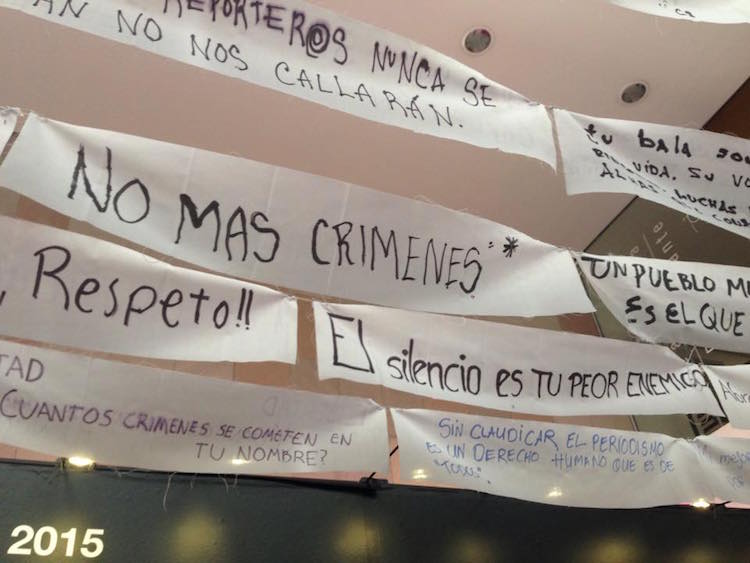 REPORTER@S NUNCA SE
AN NO NOS CALLARÁN.
tu bala
SU
NO MAS CRIMENES"*
UN PUEBLO
ES EL QUE
, Respeto!!
El silencio es TU PEOR ENEMIGO
TAD
CUANTOS CRIMENES SE COMETEN EN
TU NOMBRE?
SIN CLAUDICAR, EL PERIODISMO
ES UN DERECHO HUMANO QUE ES DE
"TODOS".
2015